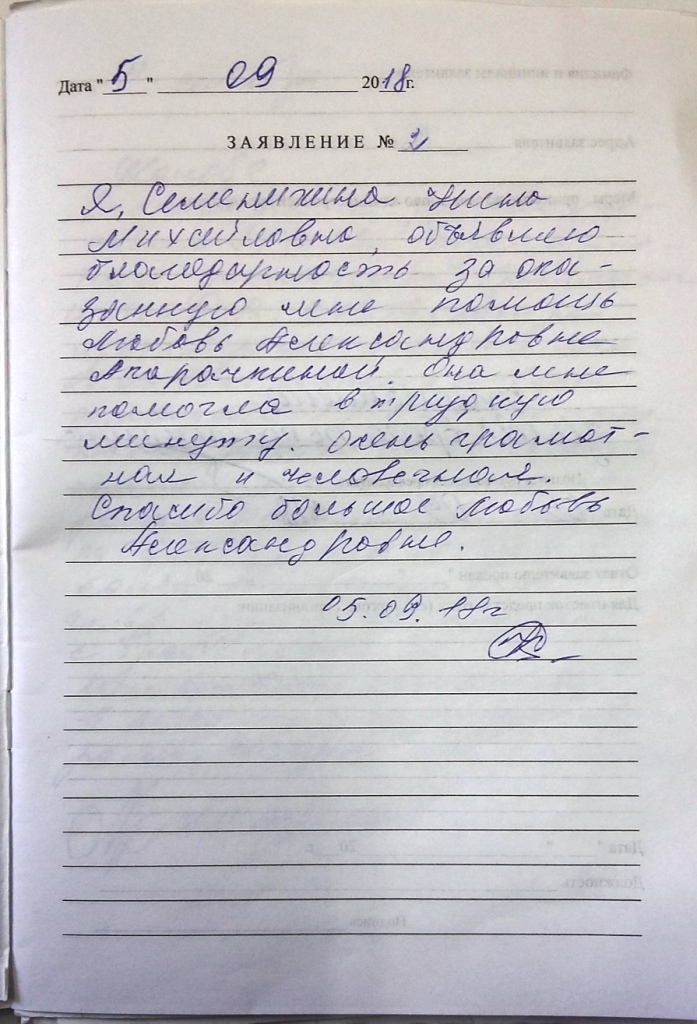 Дата "5" 09 2018г.
ЗАЯВЛЕНИЕ № 2
Я, Семенихина Нина
Михайловна, объявляю
благодарность за ока-
занную мне помощь
Любовь Александровне
Апарачкиной. Она мне
помогла в трудную
минуту. очень грамот-
ная и человечная.
Спасибо большое Любовь
Александровне.
05.09.18г